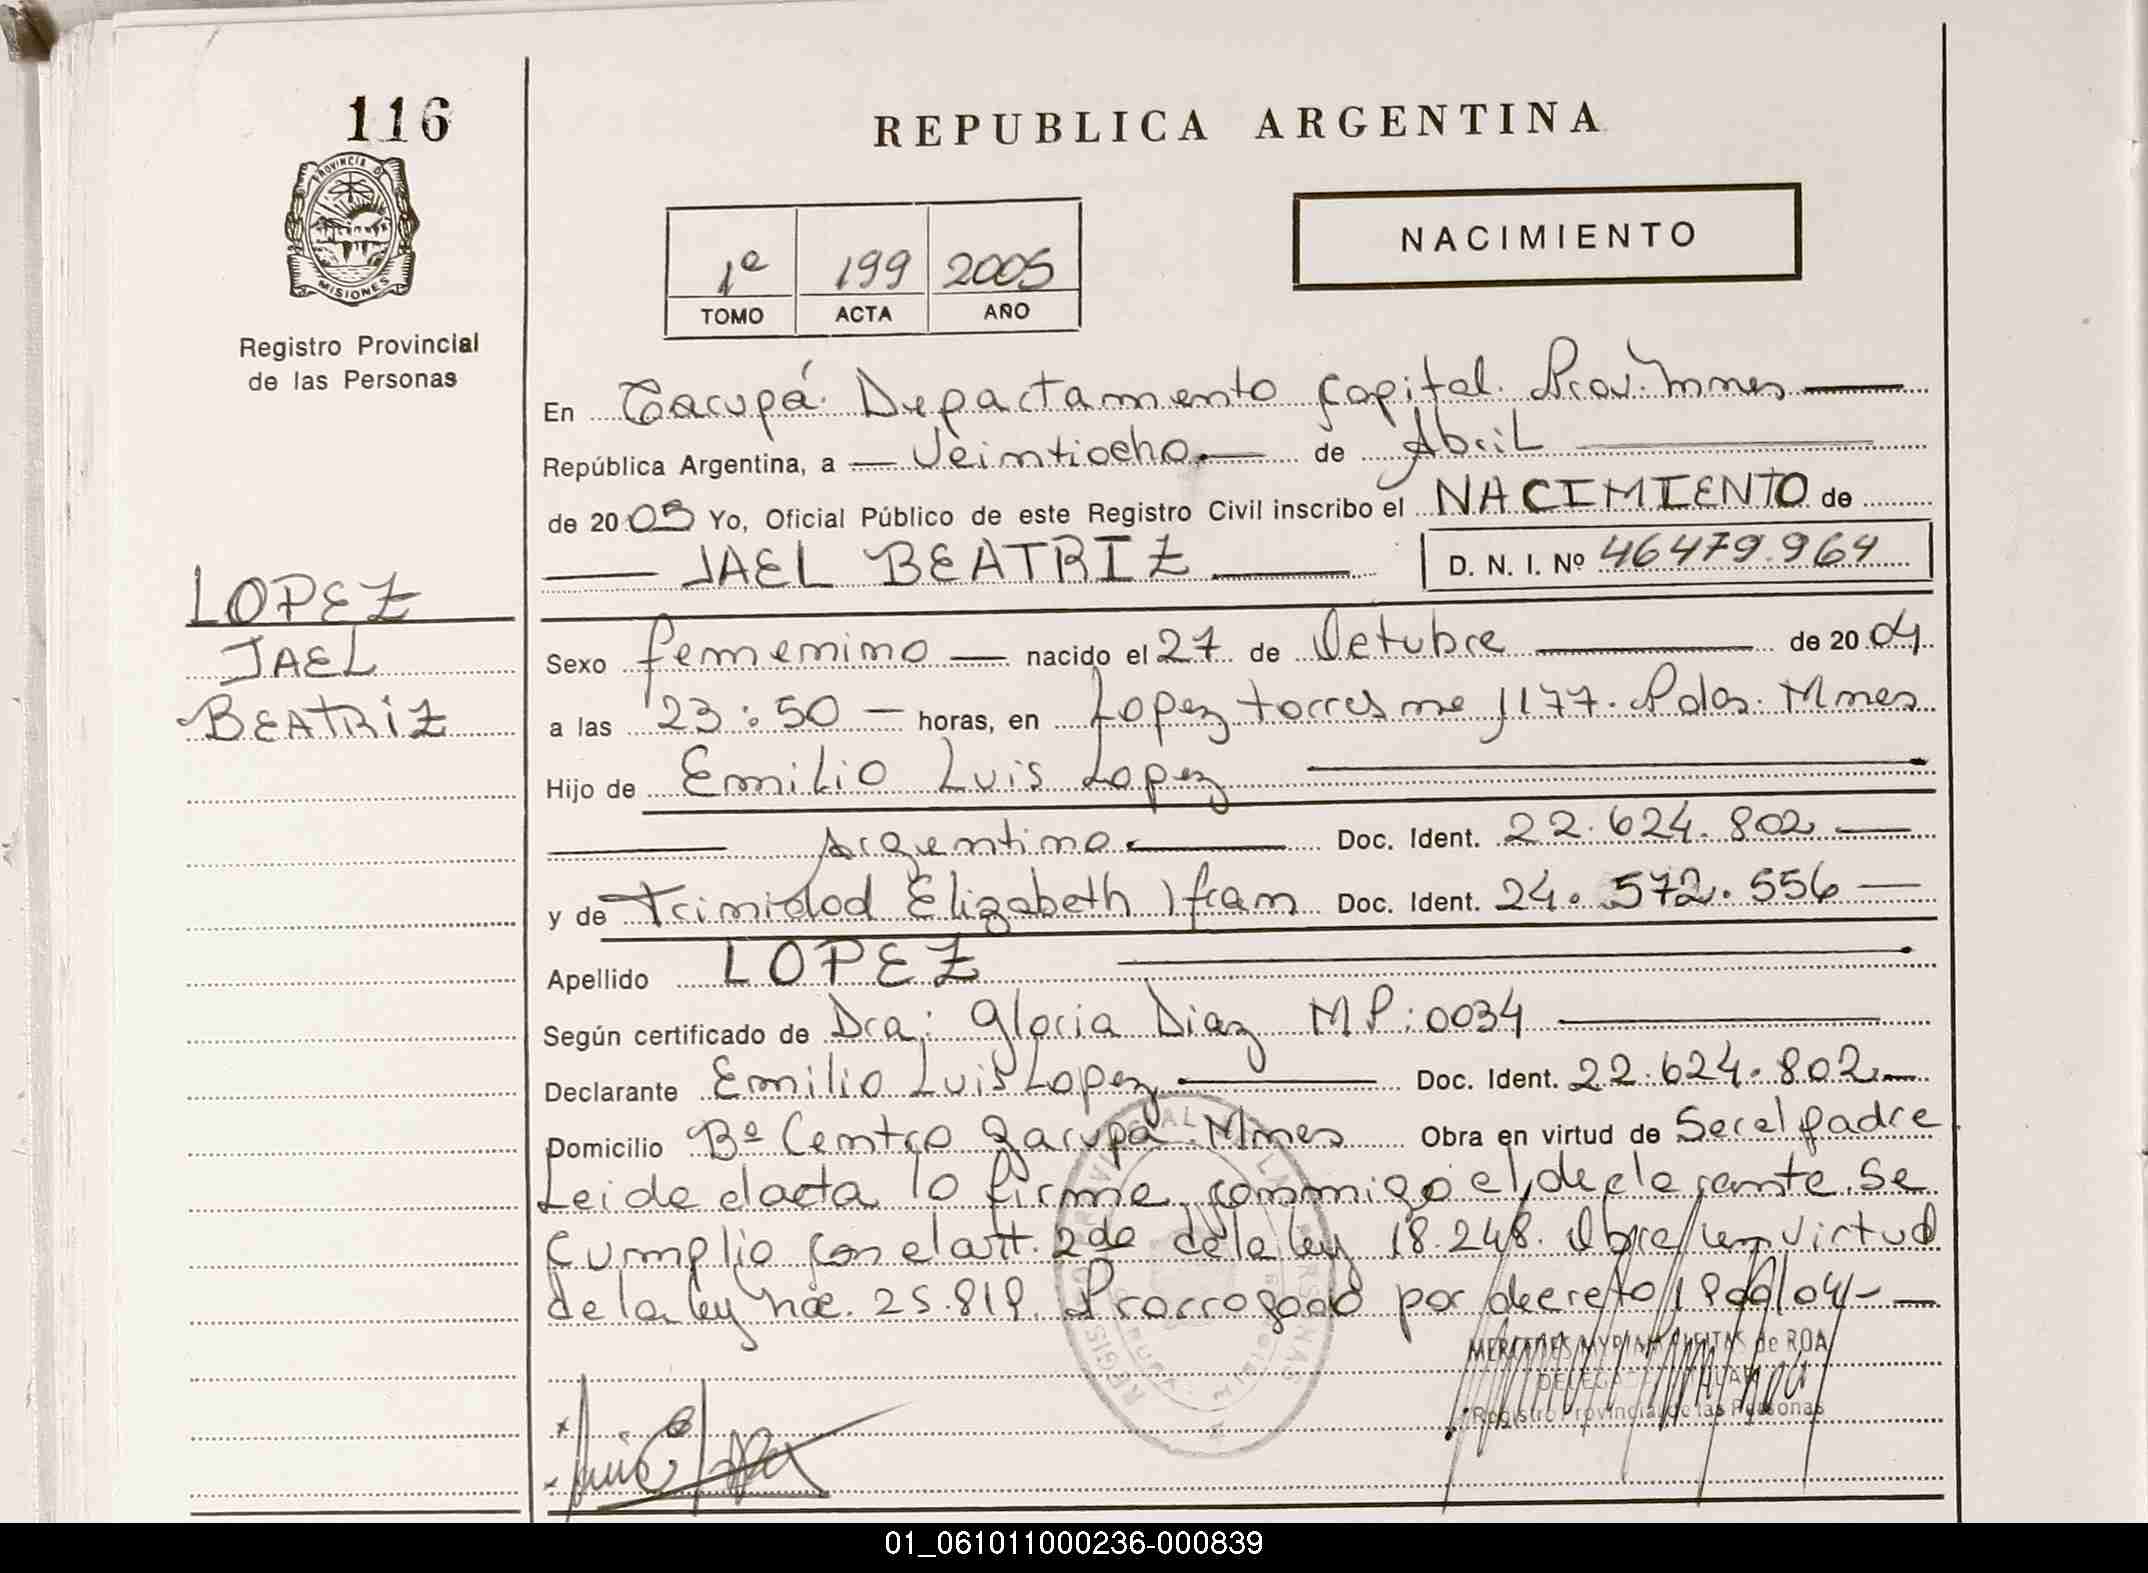 116
REPUBLICA ARGENTINA
PROVINCIA D
MISIONES
NACIMIENTO
1º 199 2005
TOMO ACTA AÑO
Registro Provincial
de las Personas
En Garupá. Departamento Capital. Prov. Mnes
República Argentina, a Veintiocho de Abril
de 20 05 Yo, Oficial Público de este Registro Civil inscribo el NACIMIENTO de
JAEL BEATRIZ D. N. I. Nº 46479.964
LOPEZ
JAEL
BEATRIZ
Sexo femenino nacido el 27 de Octubre de 20 04
a las 23:50 horas, en Lopez torres nro 1177. Pdas. Mnes
Hijo de Emilio Luis Lopez
Argentino Doc. Ident. 22.624.802
y de Trinidad Elizabeth Ifran Doc. Ident. 24.572.556
Apellido LOPEZ
Según certificado de Dra: Gloria Diaz MP:0034
Declarante Emilio Luis Lopez Doc. Ident. 22.624.802
Domicilio Bº Centro Garupá. Mnes Obra en virtud de Ser el padre
Leida el acta lo firma conmigo el declarante. Se
cumplio con el art. 2do de la ley 18.248. Obra en virtud
de la ley nro. 25.819. Prorrogado por decreto /04-
MERCEDES MYRIAM de ROA
Registro Provincial de las Personas
01_061011000236-000839